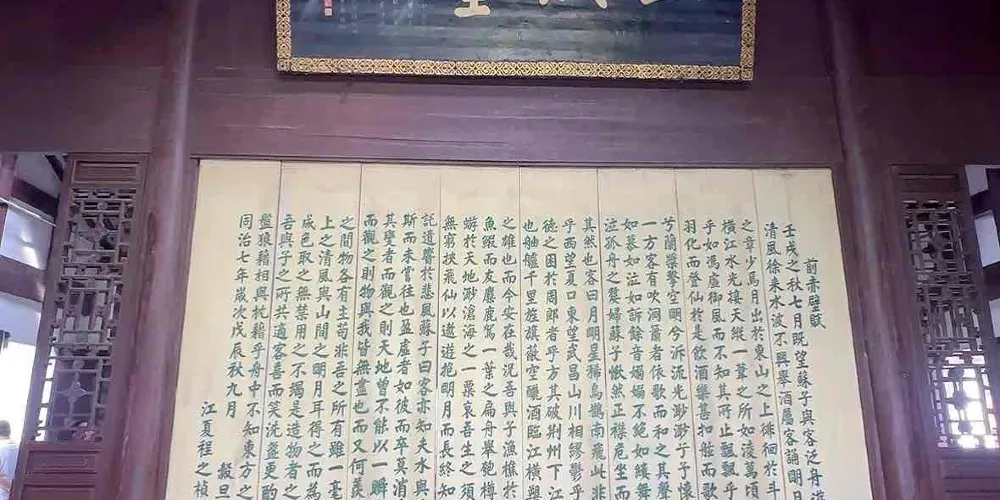 前赤壁賦
壬戌之秋七月既望蘇子與客泛舟
清風徐來水波不興舉酒屬客誦明
之章少焉月出於東山之上徘徊於斗
橫江水光接天縱一葦之所如凌萬頃
乎如馮虛御風而不知其所止飄飄乎
羽化而登仙於是飲酒樂甚扣舷而歌
兮蘭槳擊空明兮泝流光渺渺于予懷
一方客有吹洞簫者依歌而和之其聲
如慕如泣如訴餘音嫋嫋不絕如縷舞
泣孤舟之嫠婦蘇子愀然正襟危坐而
其然也客曰月明星稀烏鵲南飛此非
乎西望夏口東望武昌山川相繆鬱乎
德之困於周郎者乎方其破荊州下江
也舳艫千里旌旗蔽空釃酒臨江橫槊
之雄也而今安在哉況吾與子漁樵於
魚蝦而友麋鹿駕一葉之扁舟舉匏樽
蜉於天地渺滄海之一粟哀吾生之須
無窮挾飛仙以遨遊抱明月而長終知
託遺響於悲風蘇子曰客亦知夫水與
斯而未嘗往也盈虛者如彼而卒莫消
其變者而觀之則天地曾不能以一瞬
而觀之則物與我皆無盡也而又何羨
之間物各有主苟非吾之所有雖一毫
上之清風與山間之明月耳得之而為
成色取之無禁用之不竭是造物者之
吾與子之所共適客喜而笑洗盞更酌
盤狼藉相與枕藉乎舟中不知東方之
同治七年歲次戊辰秋九月 穀旦
江夏程之楨